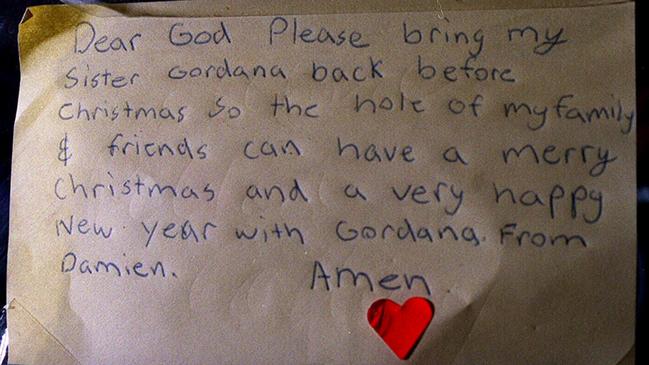 Dear God Please bring my
Sister Gordana back before
Christmas so the hole of my family
& friends can have a merry
Christmas and a very happy
New year with Gordana. From
Damien. Amen